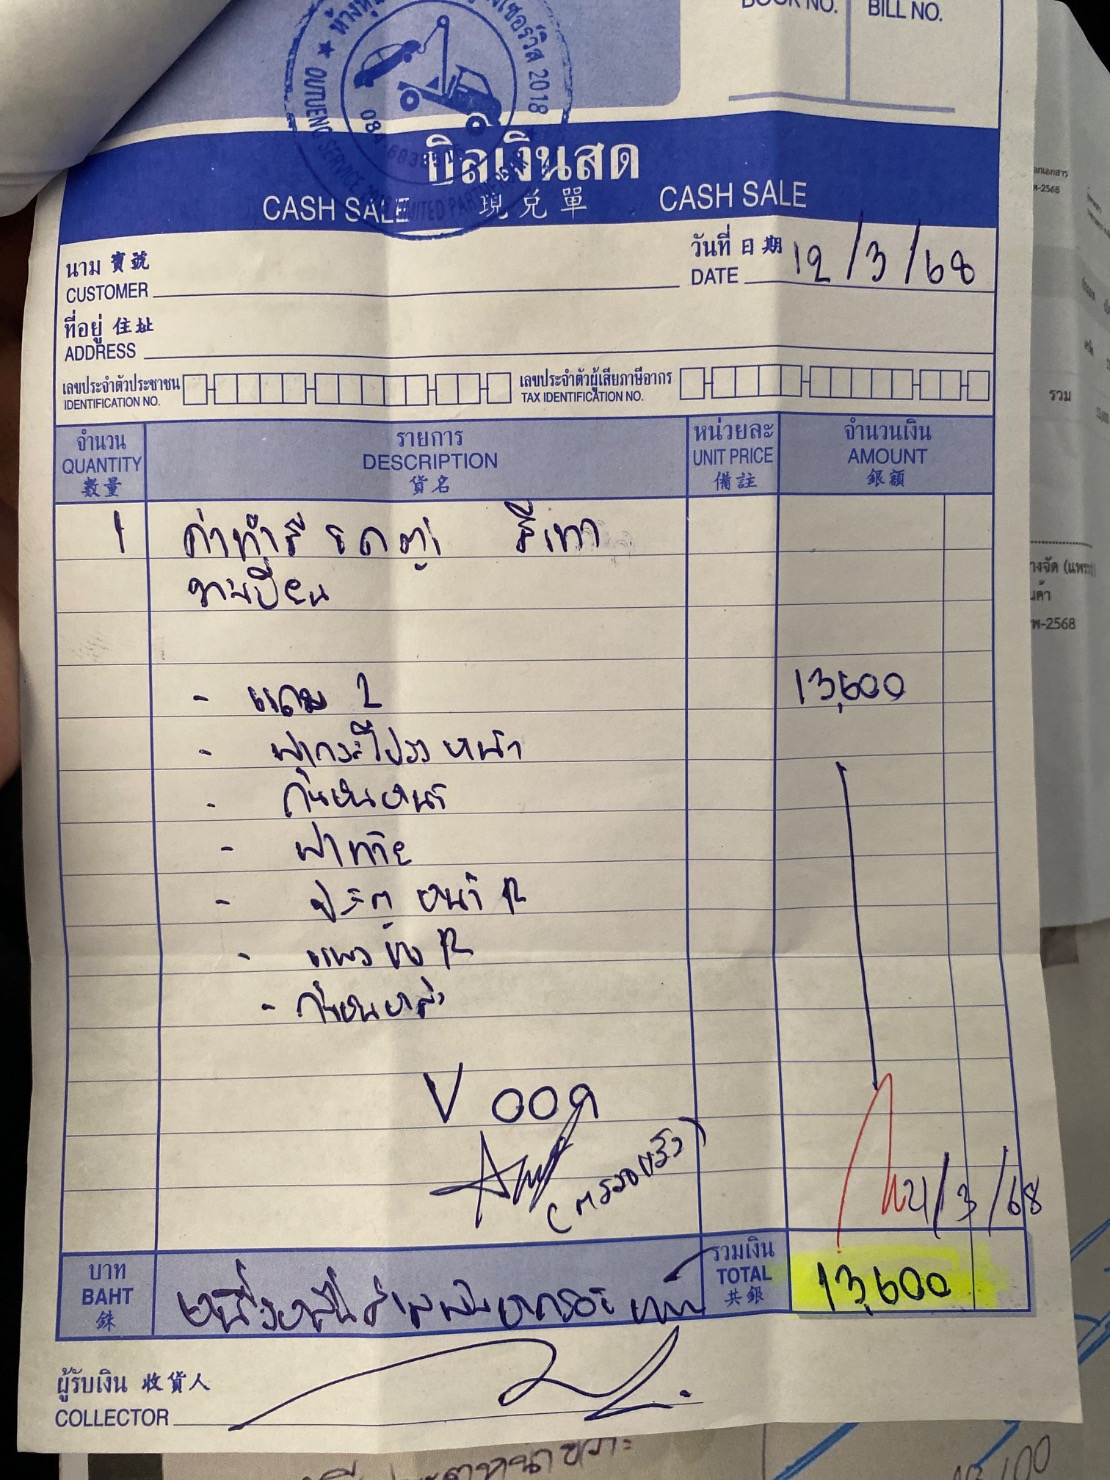 BOOK NO. BILL NO.
2018
บิลเงินสด
CASH SALE 現兌單 CASH SALE
นาม 寶號
CUSTOMER
วันที่ 日期
DATE 12/3/68
ที่อยู่ 住址
ADDRESS
เลขประจำตัวประชาชน
IDENTIFICATION NO.
เลขประจำตัวผู้เสียภาษีอากร
TAX IDENTIFICATION NO.
จำนวน
QUANTITY
數量
รายการ
DESCRIPTION
貨名
หน่วยละ
UNIT PRICE
備註
จำนวนเงิน
AMOUNT
銀額
1 ค่าทำสี รถตู้ สีเทา
- แถม 2 13,600
- ฝากระโปรงหน้า
- กันชนหน้า
- ฝาท้าย
- ประตู หน้า R
- แผงข้าง R
- กันชนหลัง
V 009
(ตรวจแล้ว)
21/3/68
บาท
BAHT
銖
หนึ่งหมื่นสามพันหกร้อยบาท
รวมเงิน
TOTAL
共銀
13,600
ผู้รับเงิน 收貨人
COLLECTOR
รวม